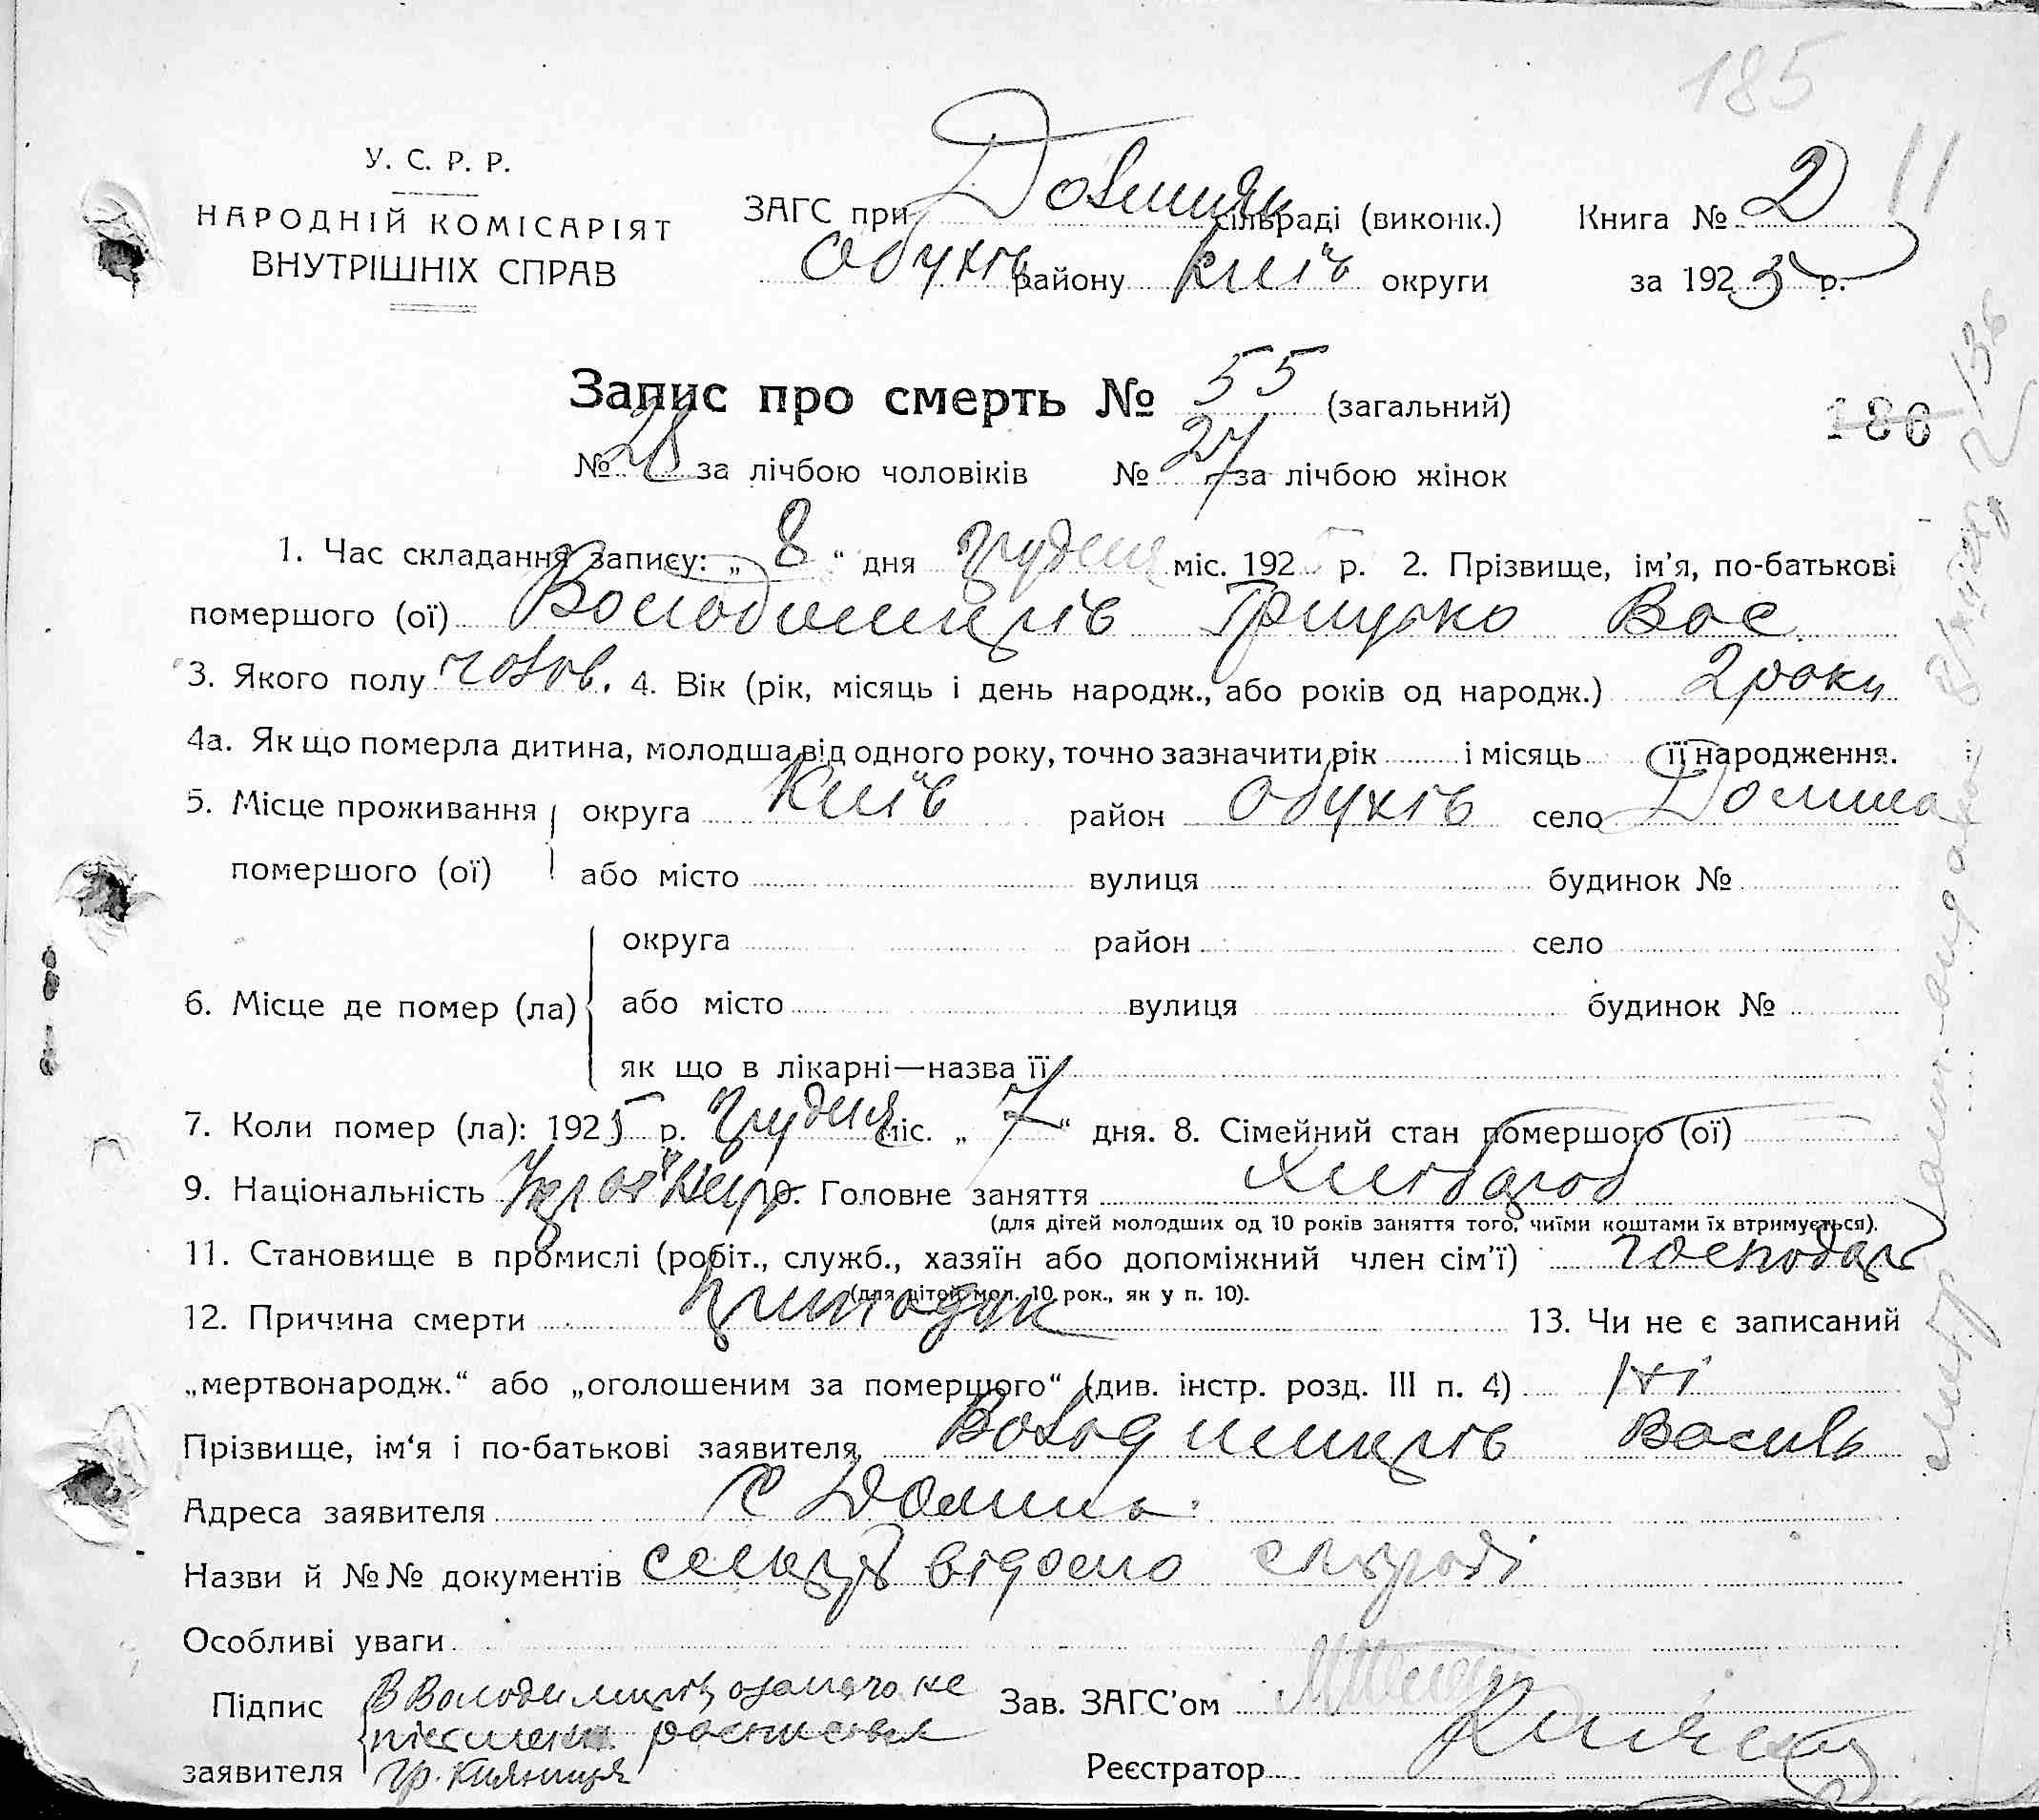 185
У. С. Р. Р.
НАРОДНІЙ КОМІСАРІЯТ
ВНУТРІШНІХ СПРАВ
ЗАГС при сільраді (виконк.) Книга № 2 11
Обухів району Київ округи за 1925 р.
Запис про смерть № 55 (загальний)
186
136
№ 28 за лічбою чоловіків № 27 за лічбою жінок
1. Час складання запису: „ 8 “ дня грудня міс. 1925 р. 2. Прізвище, ім’я, по-батькові
помершого (ої) Володимирів Грицько Вас.
3. Якого полу чолов. 4. Вік (рік, місяць і день народж., або років од народж.) 2 роки
4а. Як що померла дитина, молодша від одного року, точно зазначити рік і місяць її народження.
5. Місце проживання округа Київ район Обухів село Долина
помершого (ої) або місто вулиця будинок №
округа район село
6. Місце де помер (ла) або місто вулиця будинок №
як що в лікарні—назва її
7. Коли помер (ла): 1925 р. Грудня міс. „ 7 “ дня. 8. Сімейний стан помершого (ої)
9. Національність Україн 10. Головне заняття хлібороб
(для дітей молодших од 10 років заняття того, чиїми коштами їх втримується).
11. Становище в промислі (робіт., служб., хазяїн або допоміжний член сім’ї) господар
(для дітей мол. 10 рок., як у п. 10).
12. Причина смерти 13. Чи не є записаний
„мертвонародж.“ або „оголошеним за помершого“ (див. інстр. розд. III п. 4) Ні
Прізвище, ім‘я і по-батькові заявителя Володимирів Василь
Адреса заявителя С Долина
Назви й №№ документів відомо
Особливі уваги
Підпис В Володимирів Зав. ЗАГС’ом
заявителя гр. Реєстратор